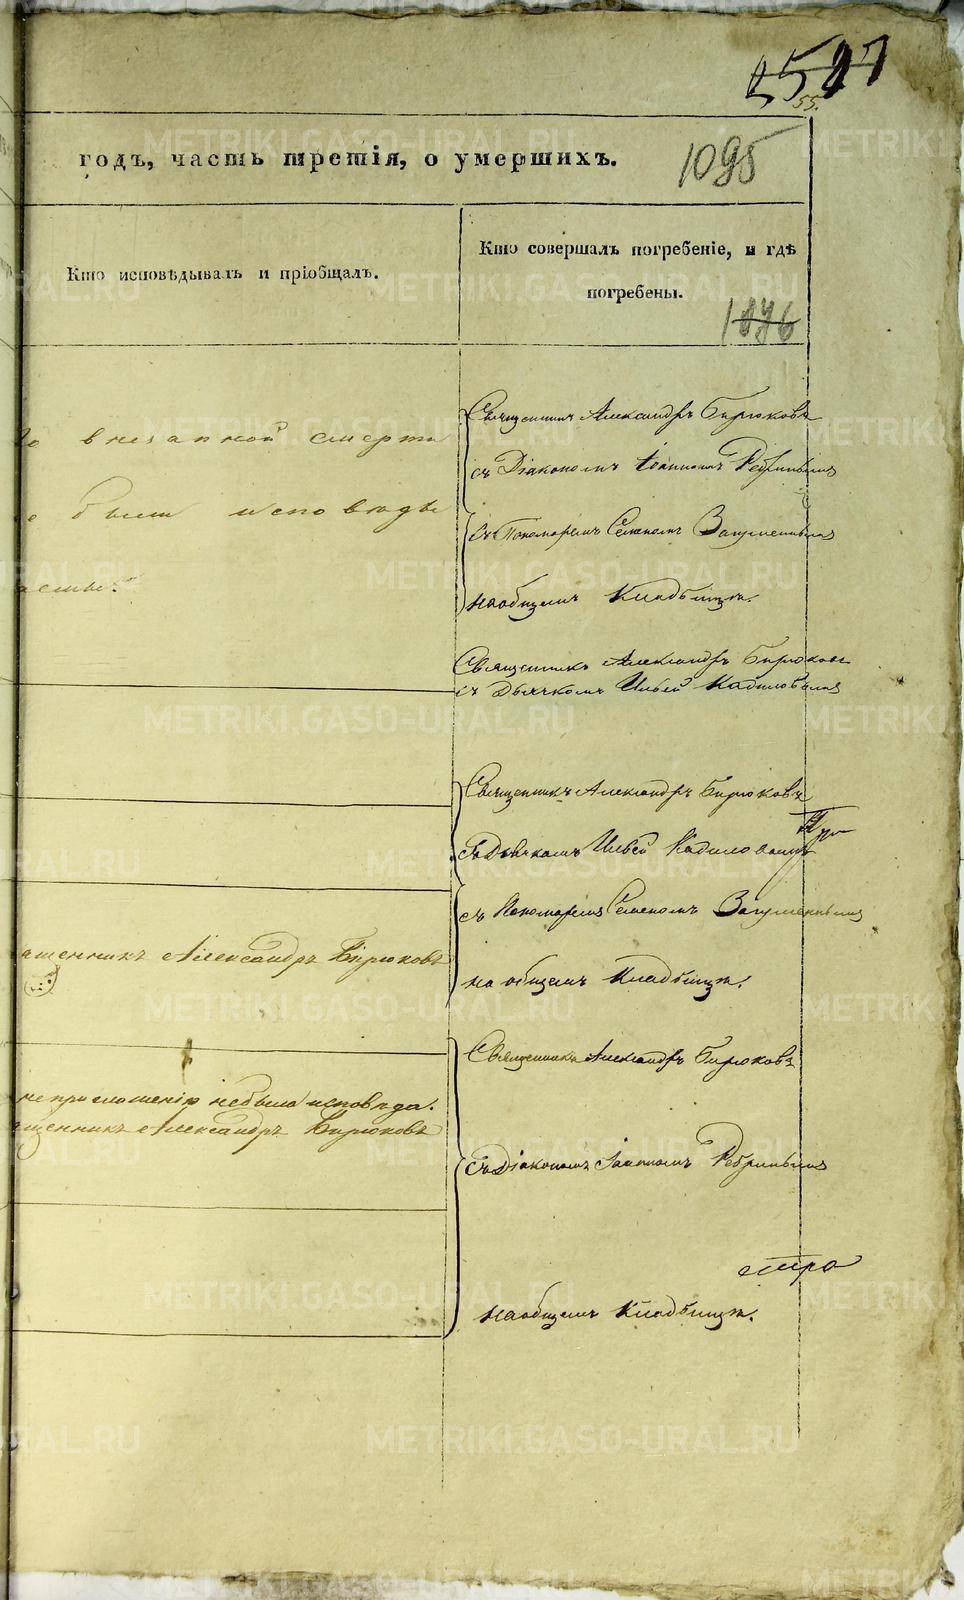 55.
годъ, часть третія, о умершихъ.
1095
Кто исповѣдывалъ и пріобщалъ.
Кто совершалъ погребеніе, и гдѣ
погребены.
1096
внезапной смерти
были исповѣды
Священникъ Александръ Бирюковъ
съ Діакономъ Іоанномъ Ребринымъ
съ Пономаремъ Семеномъ Загуменнымъ
на общемъ Кладбищѣ.
Священникъ Александръ Бирюковъ
съ Дьячкомъ Ильей Кадиловымъ
Священникъ Александръ Бирюковъ
съ Дьячкомъ Ильей Кадиловымъ
съ Пономаремъ Семеномъ Загуменнымъ
на общемъ Кладбищѣ.
ященникъ Александръ Бирюковъ
не была исповѣда.
щенникъ Александръ Бирюковъ
Священникъ Александръ Бирюковъ
съ Діакономъ Іоанномъ Ребринымъ
на общемъ Кладбищѣ.
METRIKI.GASO-URAL.RU